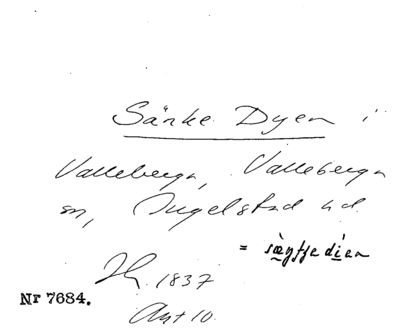 Sänke Dyen i
Valleberga, Valleberga
sn, Ingelstad hd.
= sæŋƭɟe dien
1837
Akt 10.
Nr 7684.